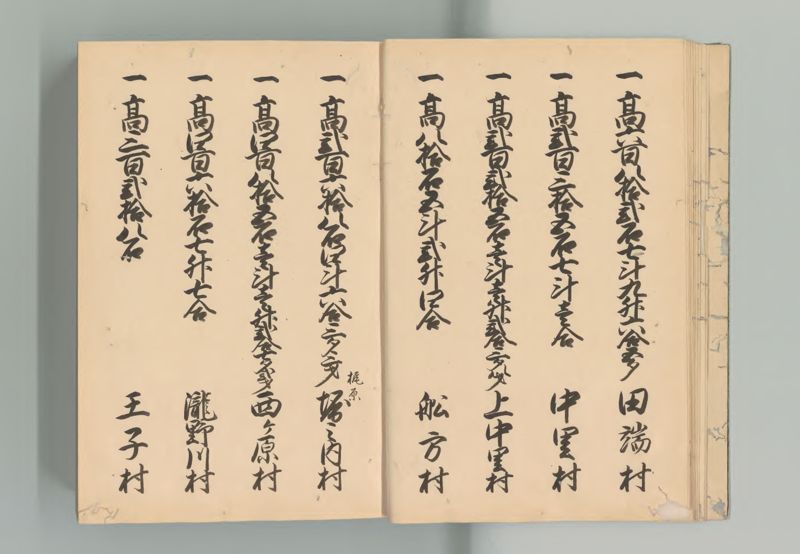 一高六百八拾弐石七斗九升六合五夕 田端村
一高弐百三拾五石七斗壱合 中里村
一高弐百弐拾五石壱斗壱升弐合 上中里村
一高八拾石五斗弐升四合 船方村
一高弐百六拾八石四斗六合 梶原堀之内村
一高四百八拾五石壱斗壱升弐合 西ヶ原村
一高四百六拾石七升七合 瀧野川村
一高三百弐拾八石 王子村